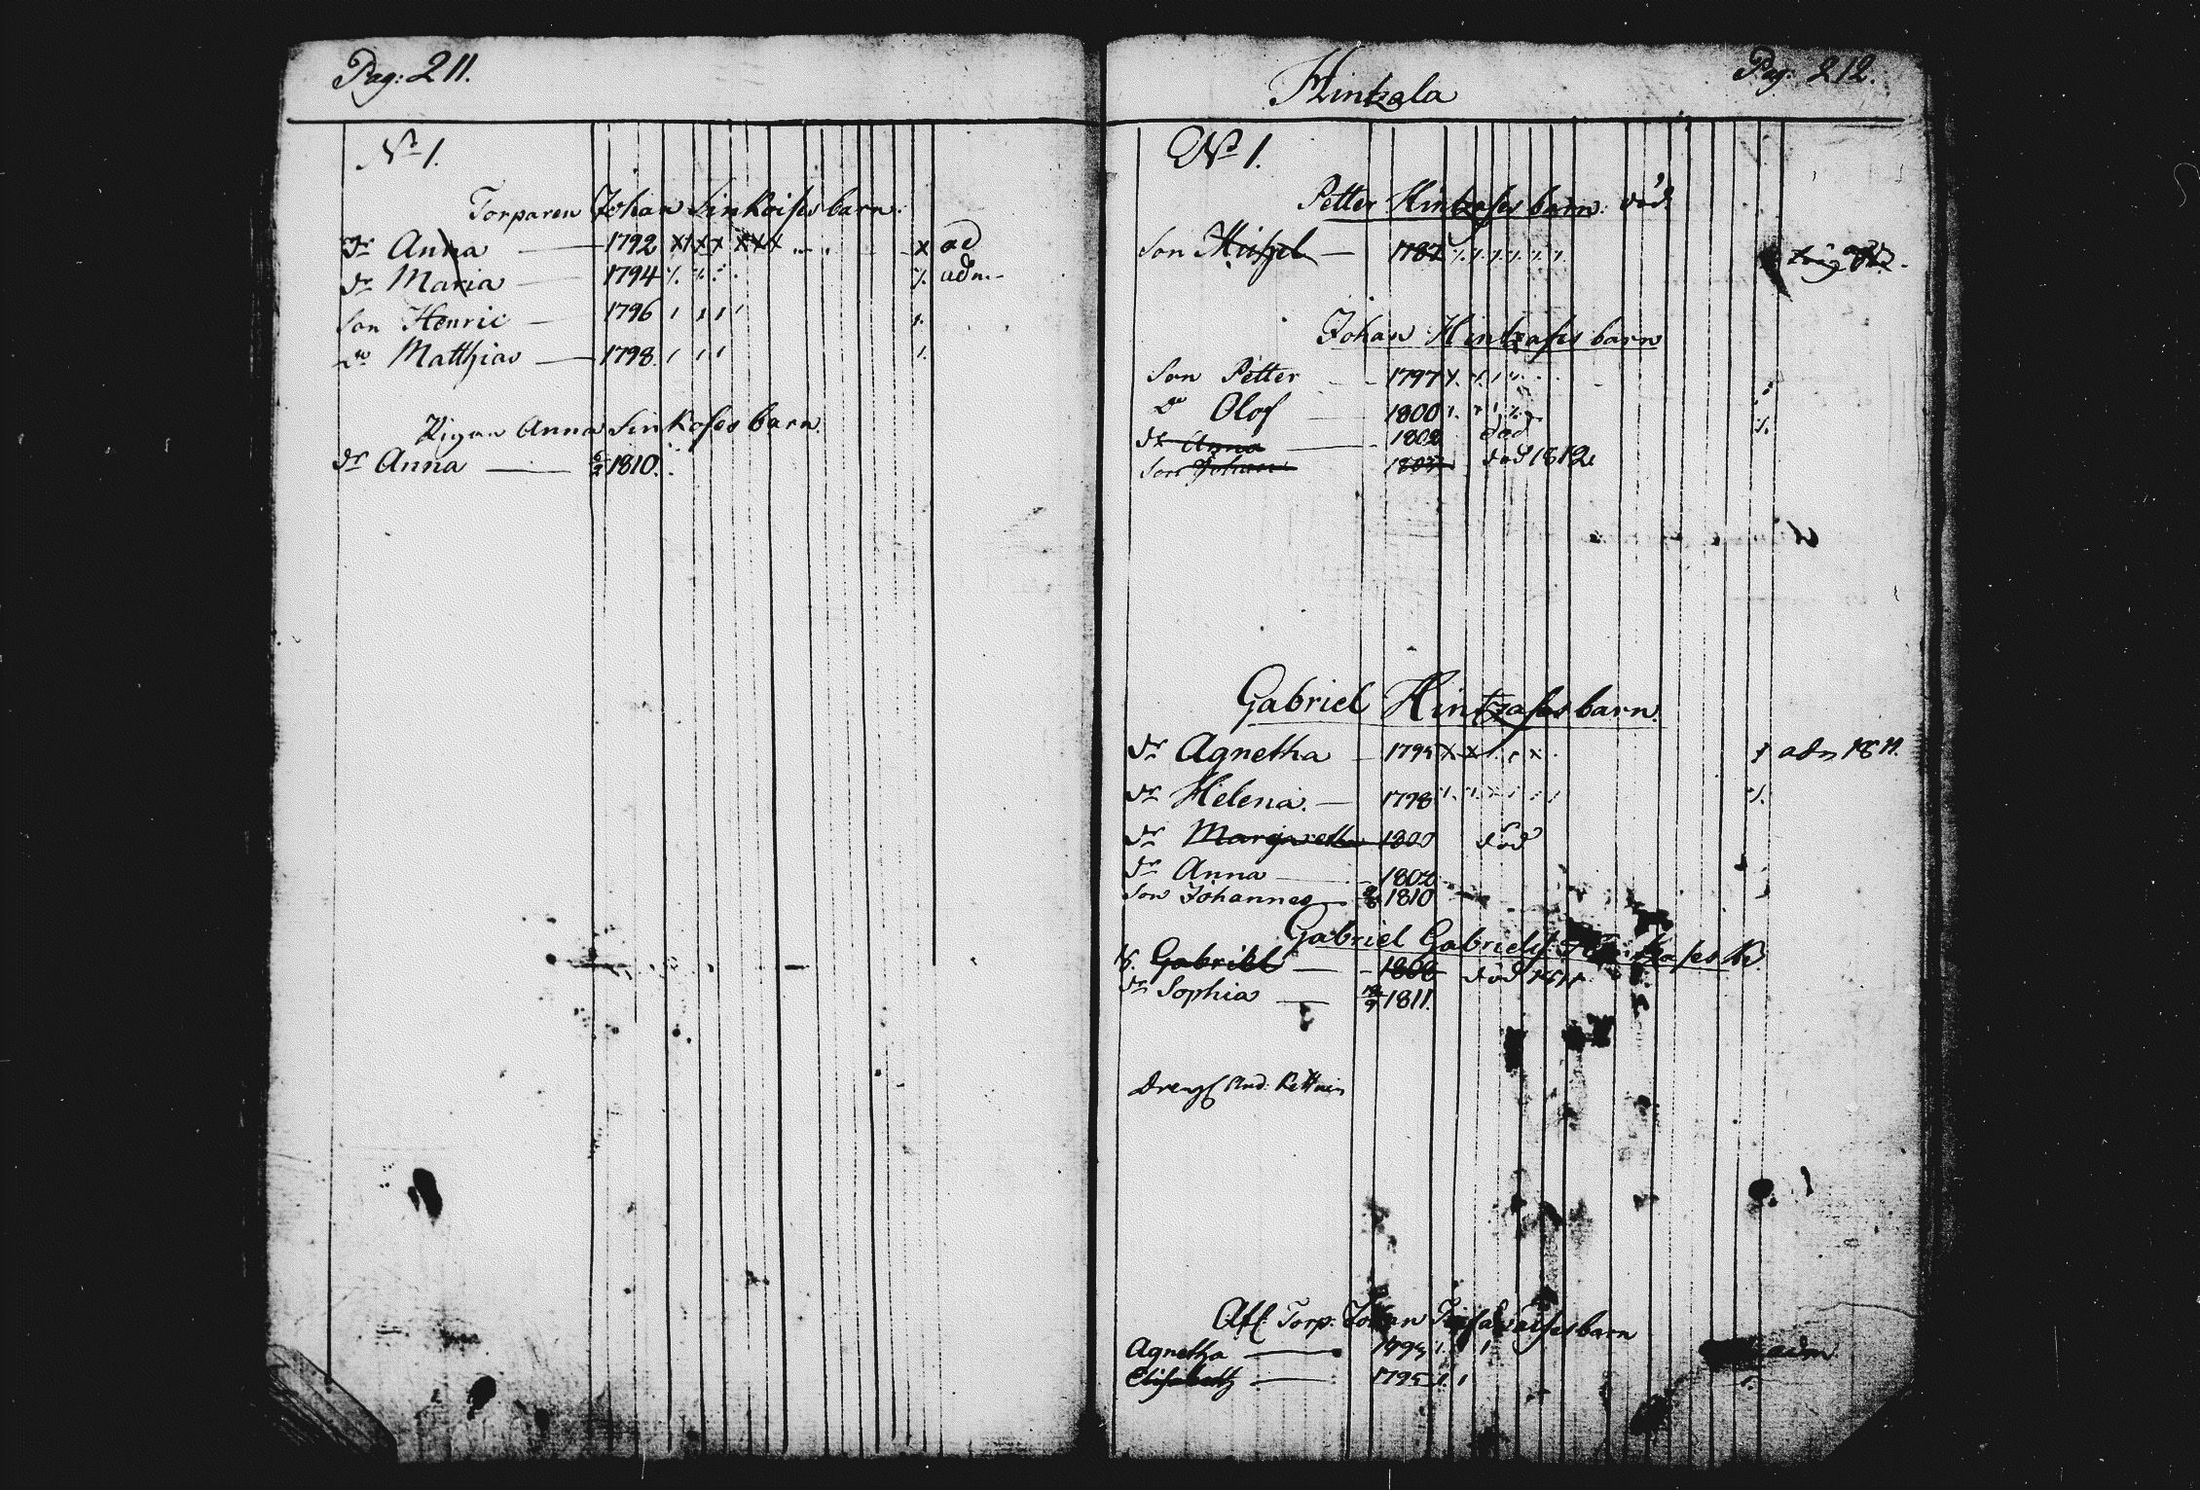 Pag: 211.
No 1.
Torparen Johan Sinkoises barn.
Dr Anna — 1792 x x x x x x x x ad
Dr Maria — 1794 adm.
Son Henric — 1796
Do Matthias — 1798.
Pigan Anna Sinkoses barn.
Dr Anna — 1810.
Pag: 212.
Hintzala
No 1.
Petter Hintzases barn: död.
Son Michel — 1787
Johan Hintzases barn
Son Petter — 1797
Do Olof — 1800
Dr Anna — 1802 död
Son Johan död 1812
Gabriel Hintzases barn.
Dr Agnetha — 1795 x x x adm 1811.
Dr Helena. — 1798
Dr Margaretha 1800 död
Dr Anna — 1808
Son Johannes — 1810
Gabriel Gabrielss: Hintzases B.
S. Gabriel — 1808 död 1811
Dr Sophia — 1811.
Dreng And:
Afl: Torp: Johan barn
Agnetha — 1795 adm.
Elisabeth — 1795